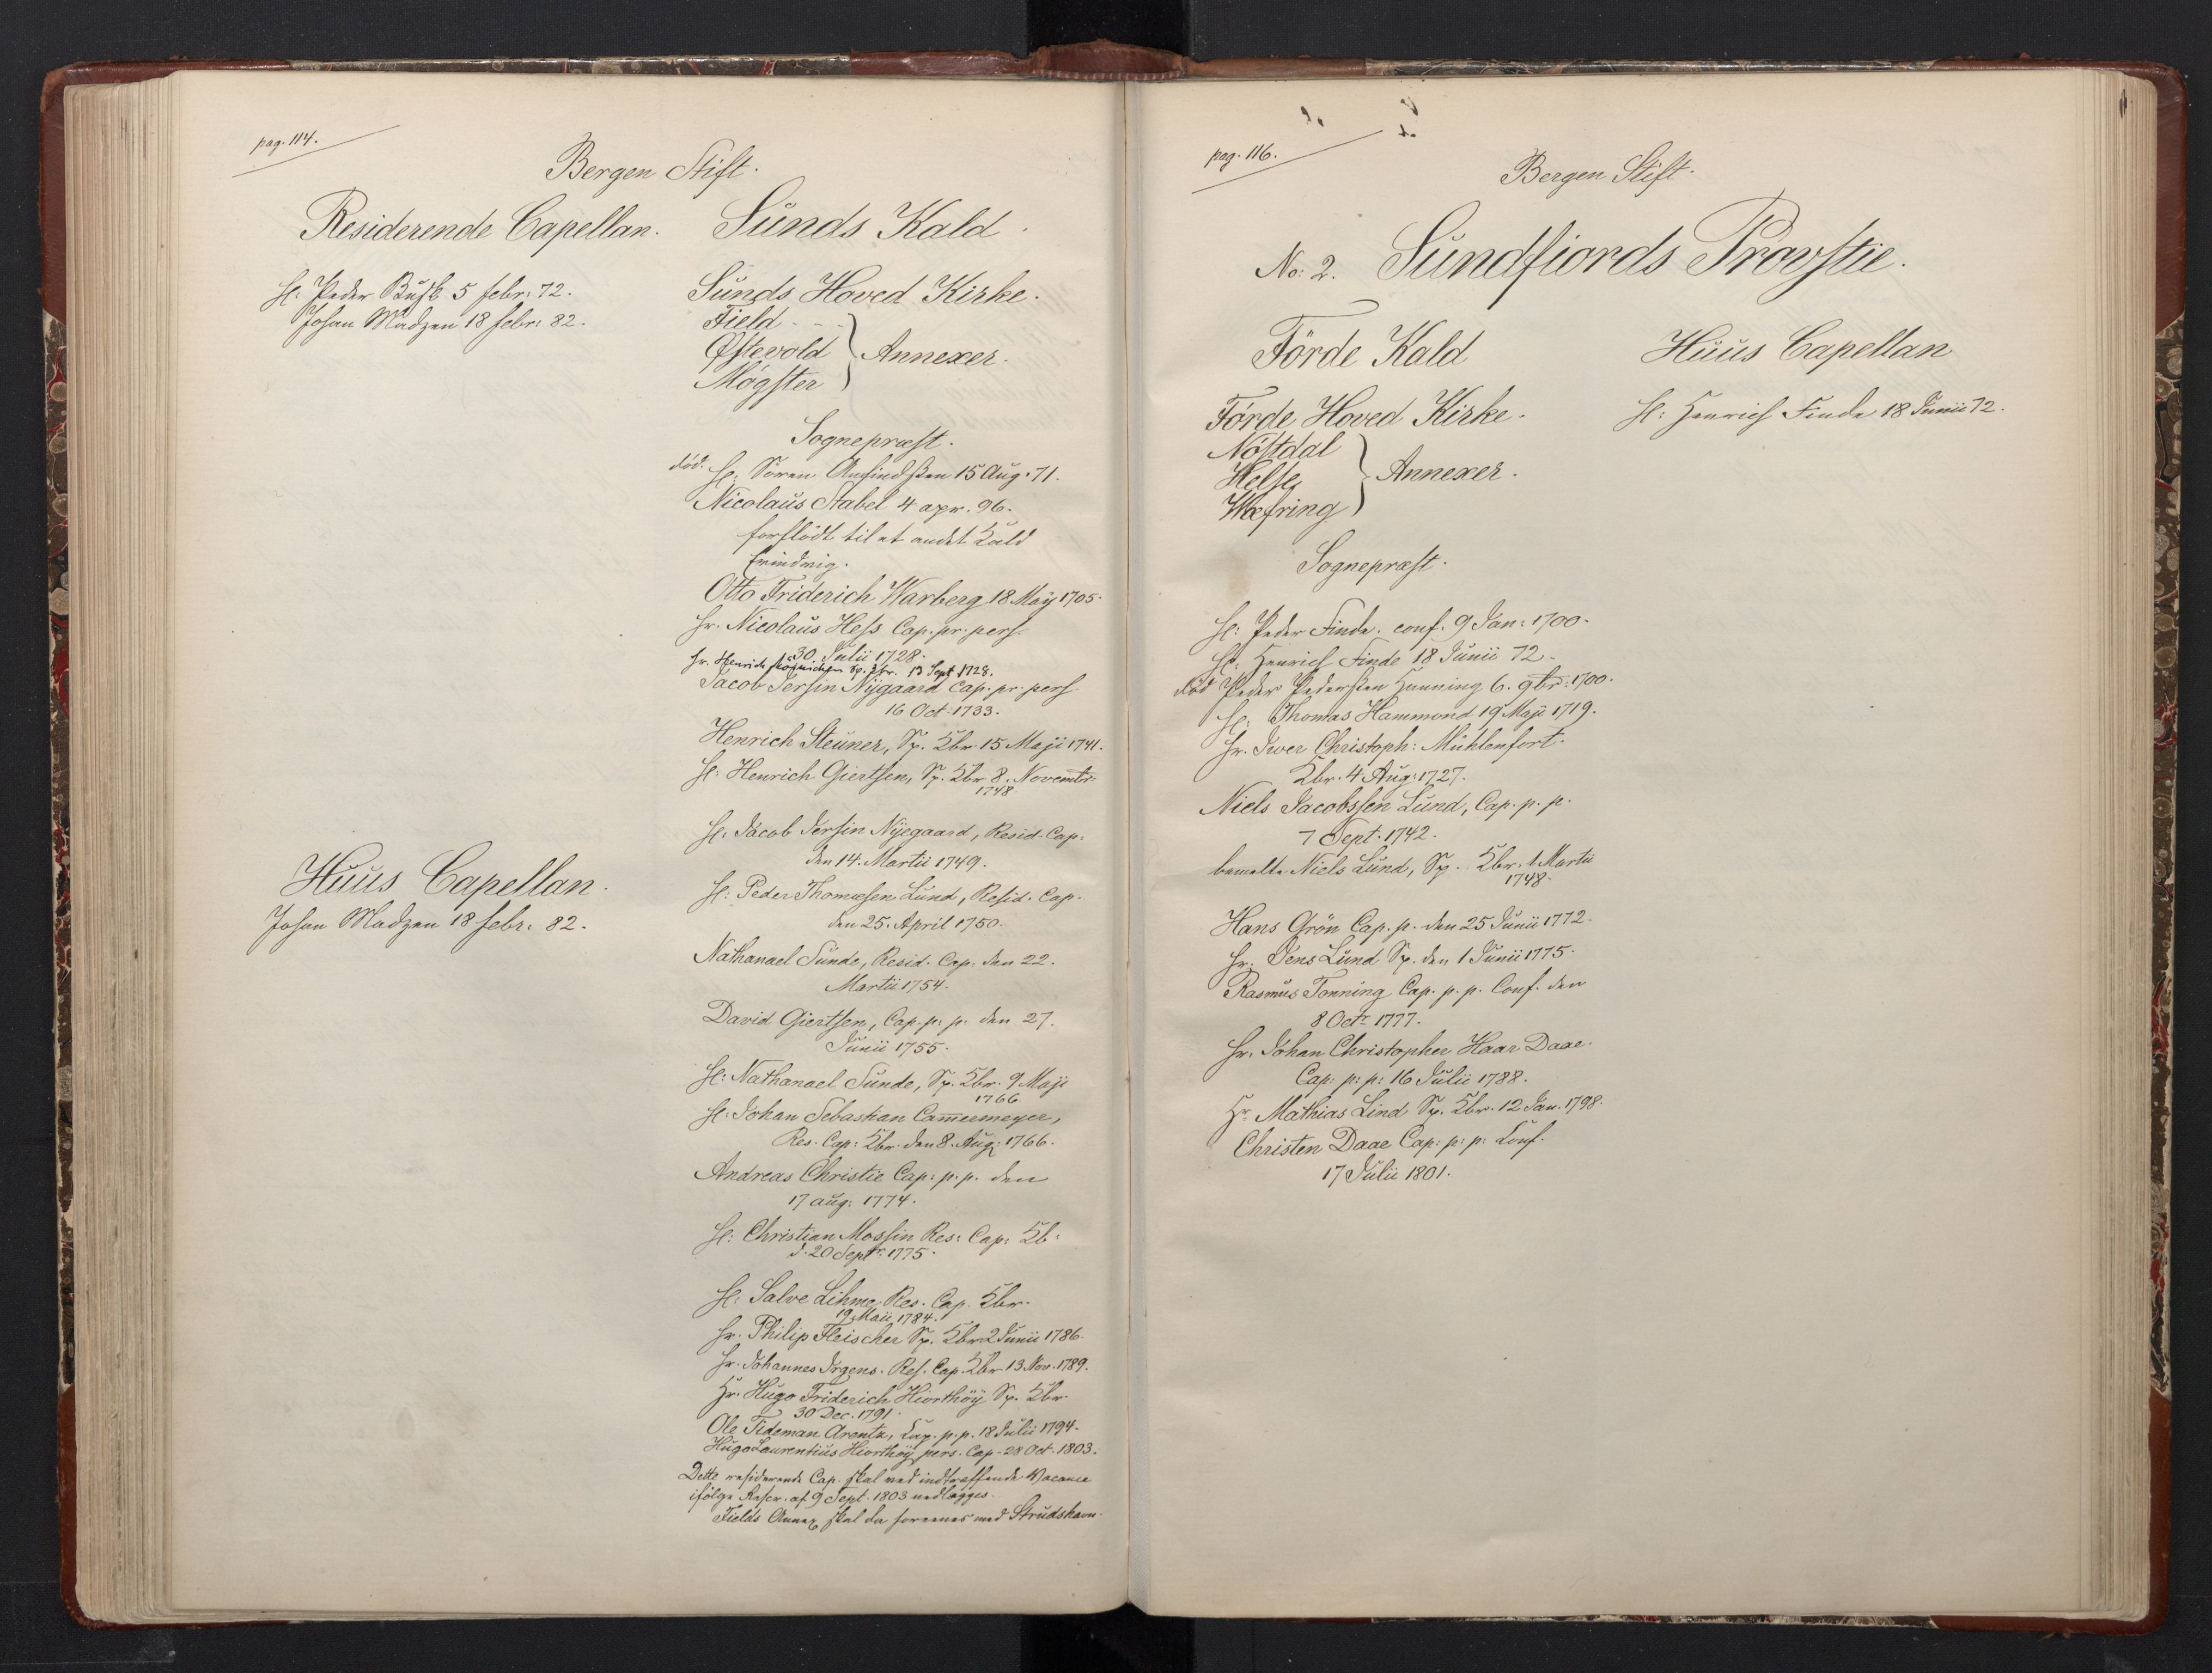 pag. 114.
Bergen Stift.
Residerende Capellan.
H: Peder Busk 5 febr: 72.
Johan Madzen 18 febr: 82.
Huus Capellan.
Johan Madzen 18 febr: 82.
Sunds Kald.
Sunds Hoved Kirke.
Field
Østevold
Møgster
Annexer.
Sognepræst.
død. H: Sören 15 Aug. 71.
Nicolaus Stabel 4 apr. 96.
forflödt til et andet Kald
Evindvig.
Otto Friderich Warberg 18 Maij 1705.
Hr. Nicolaus Hess Cap. pr. pers.
30 Julii 1728.
Hr. Henrich Sp. Kbr. 13 Sept 1728.
Jacob Jersin Nÿgaard Cap. pr. pers.
16 Oct. 1733.
Henrich Steuner, Sp. Kbr. 15 Maji 1741.
H: Henrich Giertsen, Sp. Kbr. 8. Novembr.
1748
H: Jacob Jersin Nyegaard, Resid. Cap.
den 14. Martii 1749.
H: Peder Thomesen Lund, Resid. Cap.
den 25. April 1750.
Nathanael Sunde, Resid. Cap. den 22.
Martii 1754.
David Giertsen, Cap. p. p. den 27.
Junii 1755.
H: Nathanael Sunde, Sp. Kbr. 9 Maji
1766
H: Johan Sebastian Cam̅ermeyer,
Res. Cap: Kbr. den 8. Aug: 1766.
Andreas Christie Cap: p. p. den
17 aug: 1774.
H: Christian Mossin Res: Cap: Kb:
d. 20 Septr. 1775.
H: Salve Lihme Res. Cap. Kbr.
19 Maii 1784.
Hr. Philip Fleischer Sp. Kbr. 2 Junii 1786.
Hr. Johannes Irgens. Res. Cap. Kbr. 13. Nov. 1789.
Hr. Hugo Friderich Hiorthöÿ Sp. Kbr.
30 Dec. 1791.
Ole Tideman Arentz, Cap. p. p. 18 Julii 1794.
Hugo Laurentius Hiorthöy pers. Cap. 28 Oct. 1803.
Dette residerende Cap. skal ved indtræffende Vacance
ifølge Rescr. af 9 Sept. 1803 nedlægges.
Fields Annex skal da foreenes med Strudshavn.
pag. 116.
Bergen Stift.
No: 2. Sundfiords Provstie.
Förde Kald
Förde Hoved Kirke.
Nöstdal
Helse
Wefring
Annexer.
Sognepræst.
H: Peder Finde. conf. 9 Jan: 1700.
H: Henrich Finde 18 Junii 72.
død Peder Pedersen 6. 9br: 1700.
H: Thomas Hammond 19 Maji 1719.
Hr. Iver Christoph: Mühlenfort.
Kbr. 4 Aug: 1727.
Niels Jacobssen Lund, Cap. p. p.
7 Sept. 1742.
bemelte Niels Lund, Sp. Kbr. 1 Martii
1748.
Hans Grön Cap. p. den 25 Junii 1772.
Hr. Jens Lund Sp. den 1 Junii 1775.
Rasmus Tonning Cap. p. p. Conf. den
8 Octr. 1777.
Hr. Johan Christopher Haar Daae.
Cap: p: p: 16 Julii 1788.
Hr. Mathias Lind Sp. Kbr. 12 Jan. 1798.
Christen Daae Cap: p: p: Conf.
17 Julii 1801.
Huus Capellan
H: Henrich Finde 18 Junii 72.